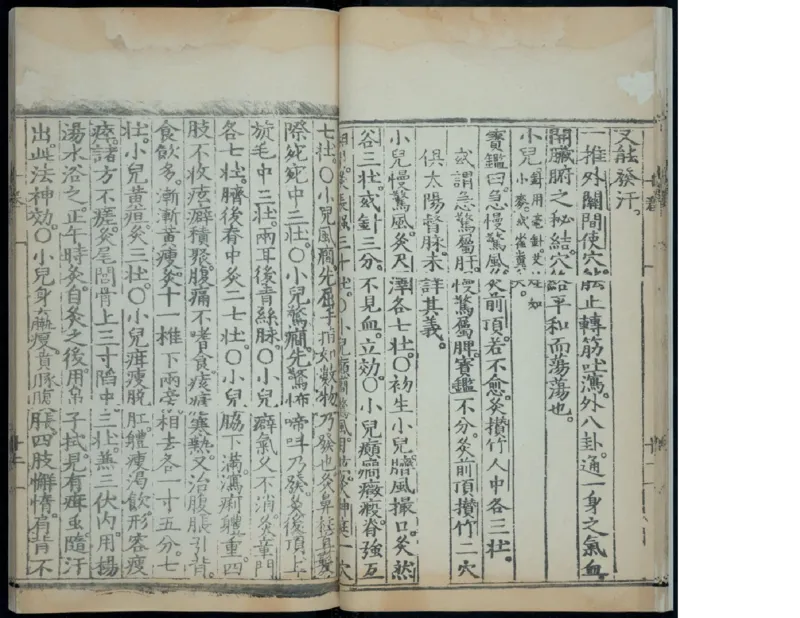 又能發汗。
一推外關間使穴。能止轉筋吐瀉。外八卦。通一身之氣血。
開臟腑之秘結。穴絡平和而蕩蕩也。
小兒
寶鑑曰。急慢驚風。灸前頂。若不愈。灸攢竹人中各三壯。
或謂急驚屬肝。慢驚屬脾。寶鑑不分。灸前頂攢竹二穴
俱太陽督脉。未詳其義。
小兒慢驚風。灸尺澤各七壯。○初生小兒臍風撮口。灸然
谷三壯。或針三分。不見血。立効。○小兒癲癎癥瘕。脊強互
三十壯。○小兒
七壯。○小兒風癎。先屈手指如數物乃發也。灸鼻
際宛宛中三壯。○小兒驚癎。先驚怖啼叫乃發。灸後頂上
旋毛中三壯。兩耳後青絲脉。○小兒癖氣久不消。灸章門
各七壯。臍後脊中灸二七壯。○小兒脇下滿。瀉痢體重。四
肢不收。痃癖積聚。腹痛不嗜食。痎瘧寒熱。又治腹脹引背。
食飮多。漸漸黃瘦。灸十一椎下兩旁相去各一寸五分。七
壯。小兒黃疸。灸三壯。○小兒疳瘦脫肛。體瘦渴飮。形容瘦
瘁。諸方不瘥。灸尾閭骨上三寸陷中三壯。兼三伏內。用楊
湯水浴之。正午時灸。自灸之後。用帛子拭。見有疳虫隨汗
出。此法神効。○小兒身羸瘦賁豚腹脹。四肢懈惰。肩背不